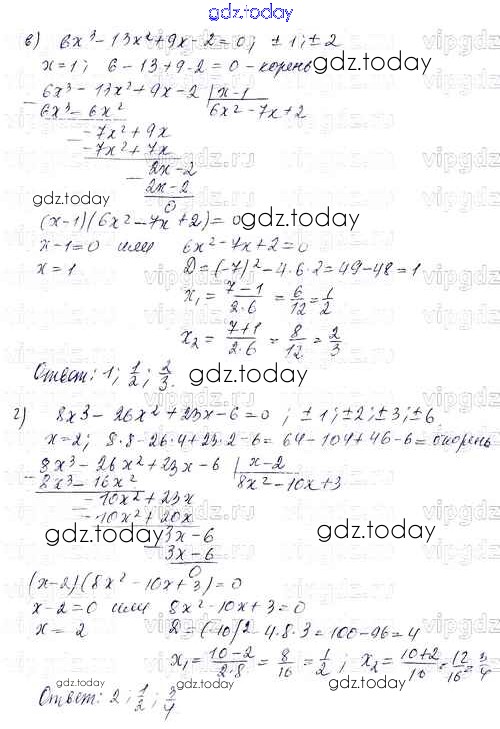 gdz.today
в) 6x³ - 13x² + 9x - 2 = 0; ±1; ±2
x = 1; 6 - 13 + 9 - 2 = 0 - корень
6x³ - 13x² + 9x - 2 | x - 1
6x³ - 6x² 6x² - 7x + 2
- 7x² + 9x
- 7x² + 7x
2x - 2
2x - 2
0
gdz.today
gdz.today
(x - 1)(6x² - 7x + 2) = 0
x - 1 = 0 или 6x² - 7x + 2 = 0
x = 1 D = (-7)² - 4·6·2 = 49 - 48 = 1
x₁ = (7 - 1)/(2·6) = 6/12 = 1/2
x₂ = (7 + 1)/(2·6) = 8/12 = 2/3
Ответ: 1; 1/2; 2/3.
gdz.today
г) 8x³ - 26x² + 23x - 6 = 0; ±1; ±2; ±3; ±6
x = 2; 8·8 - 26·4 + 23·2 - 6 = 64 - 104 + 46 - 6 = 0 корень
8x³ - 26x² + 23x - 6 | x - 2
8x³ - 16x² 8x² - 10x + 3
- 10x² + 23x
- 10x² + 20x
3x - 6
3x - 6
0
gdz.today
gdz.today
(x - 2)(8x² - 10x + 3) = 0
x - 2 = 0 или 8x² - 10x + 3 = 0
x = 2 D = (-10)² - 4·8·3 = 100 - 96 = 4
x₁ = (10 - 2)/(2·8) = 8/16 = 1/2; x₂ = (10 + 2)/16 = 12/16 = 3/4
Ответ: 2; 1/2; 3/4
gdz.today
gdz.today